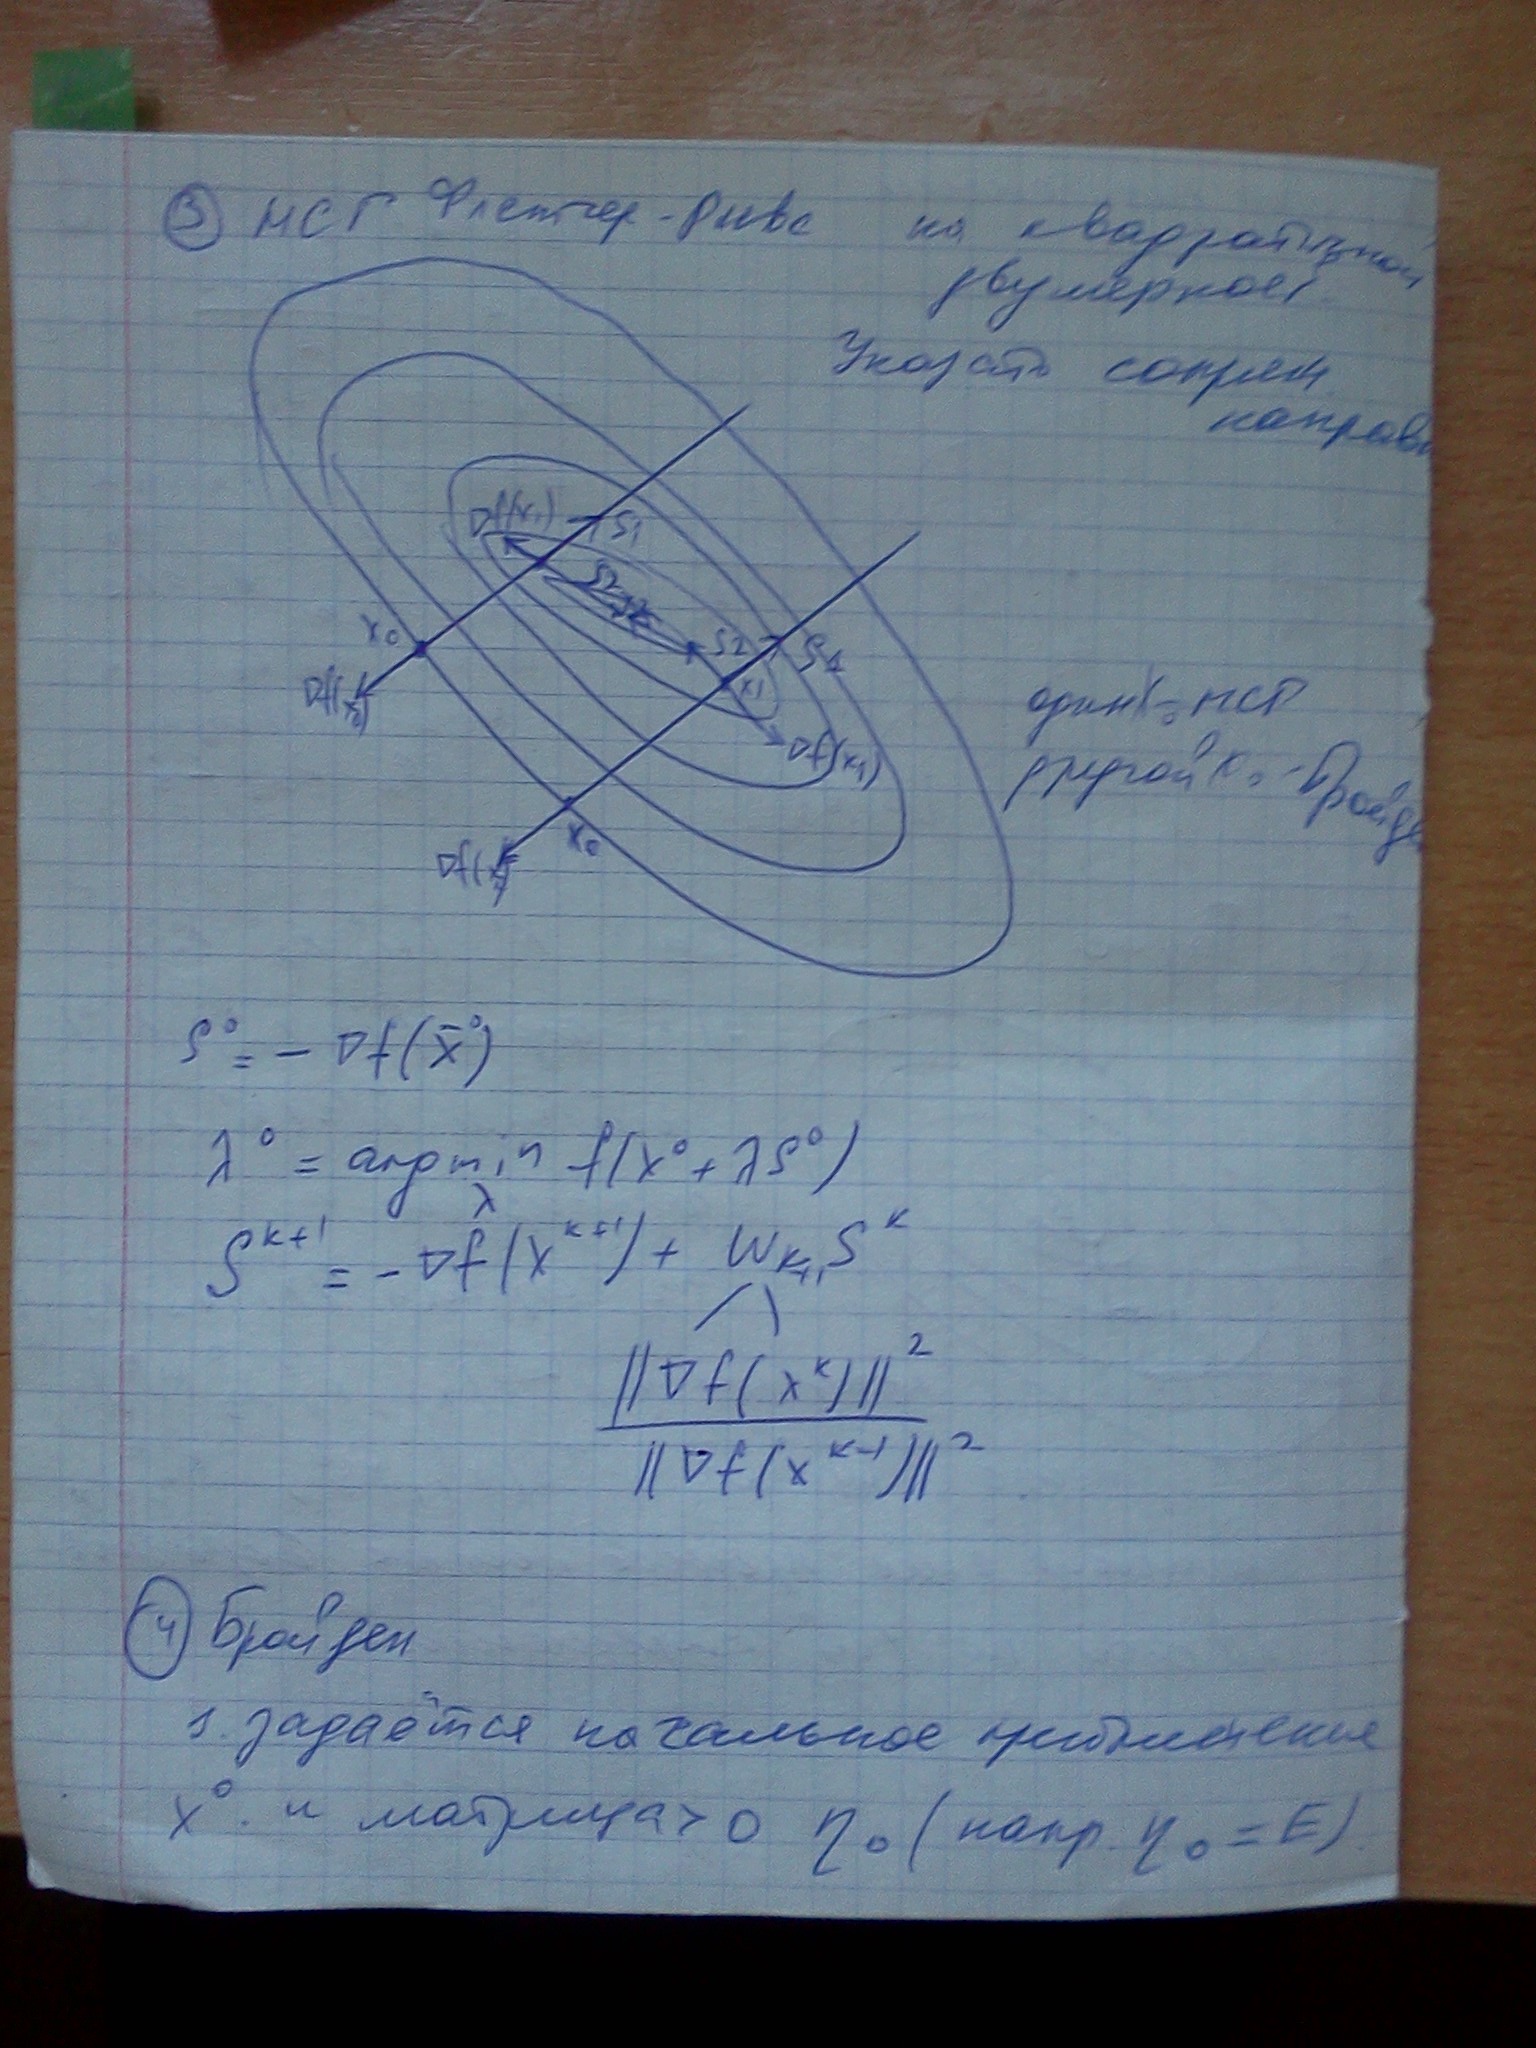 ③ МСГ Флетчер-Ривс на квадратичной
двумерной.
Указать сопряж.
направл
∇f(x₁) S₁
S₂
x₀
∇f(x₀)
S₂ S₁
x₁
∇f(x₁)
x₀
один x₀ - МСГ
другой x₀ - Бройден
S⁰ = - ∇f(x̄⁰)
λ⁰ = argmin f(x⁰ + λS⁰)
λ
Sᵏ⁺¹ = - ∇f(xᵏ⁺¹) + Wₖ₊₁ Sᵏ
||∇f(xᵏ)||²
||∇f(xᵏ⁻¹)||²
④ Бройден
1. задаётся начальное приближение
x⁰. и матрица > 0 η₀ (напр. η₀ = E).